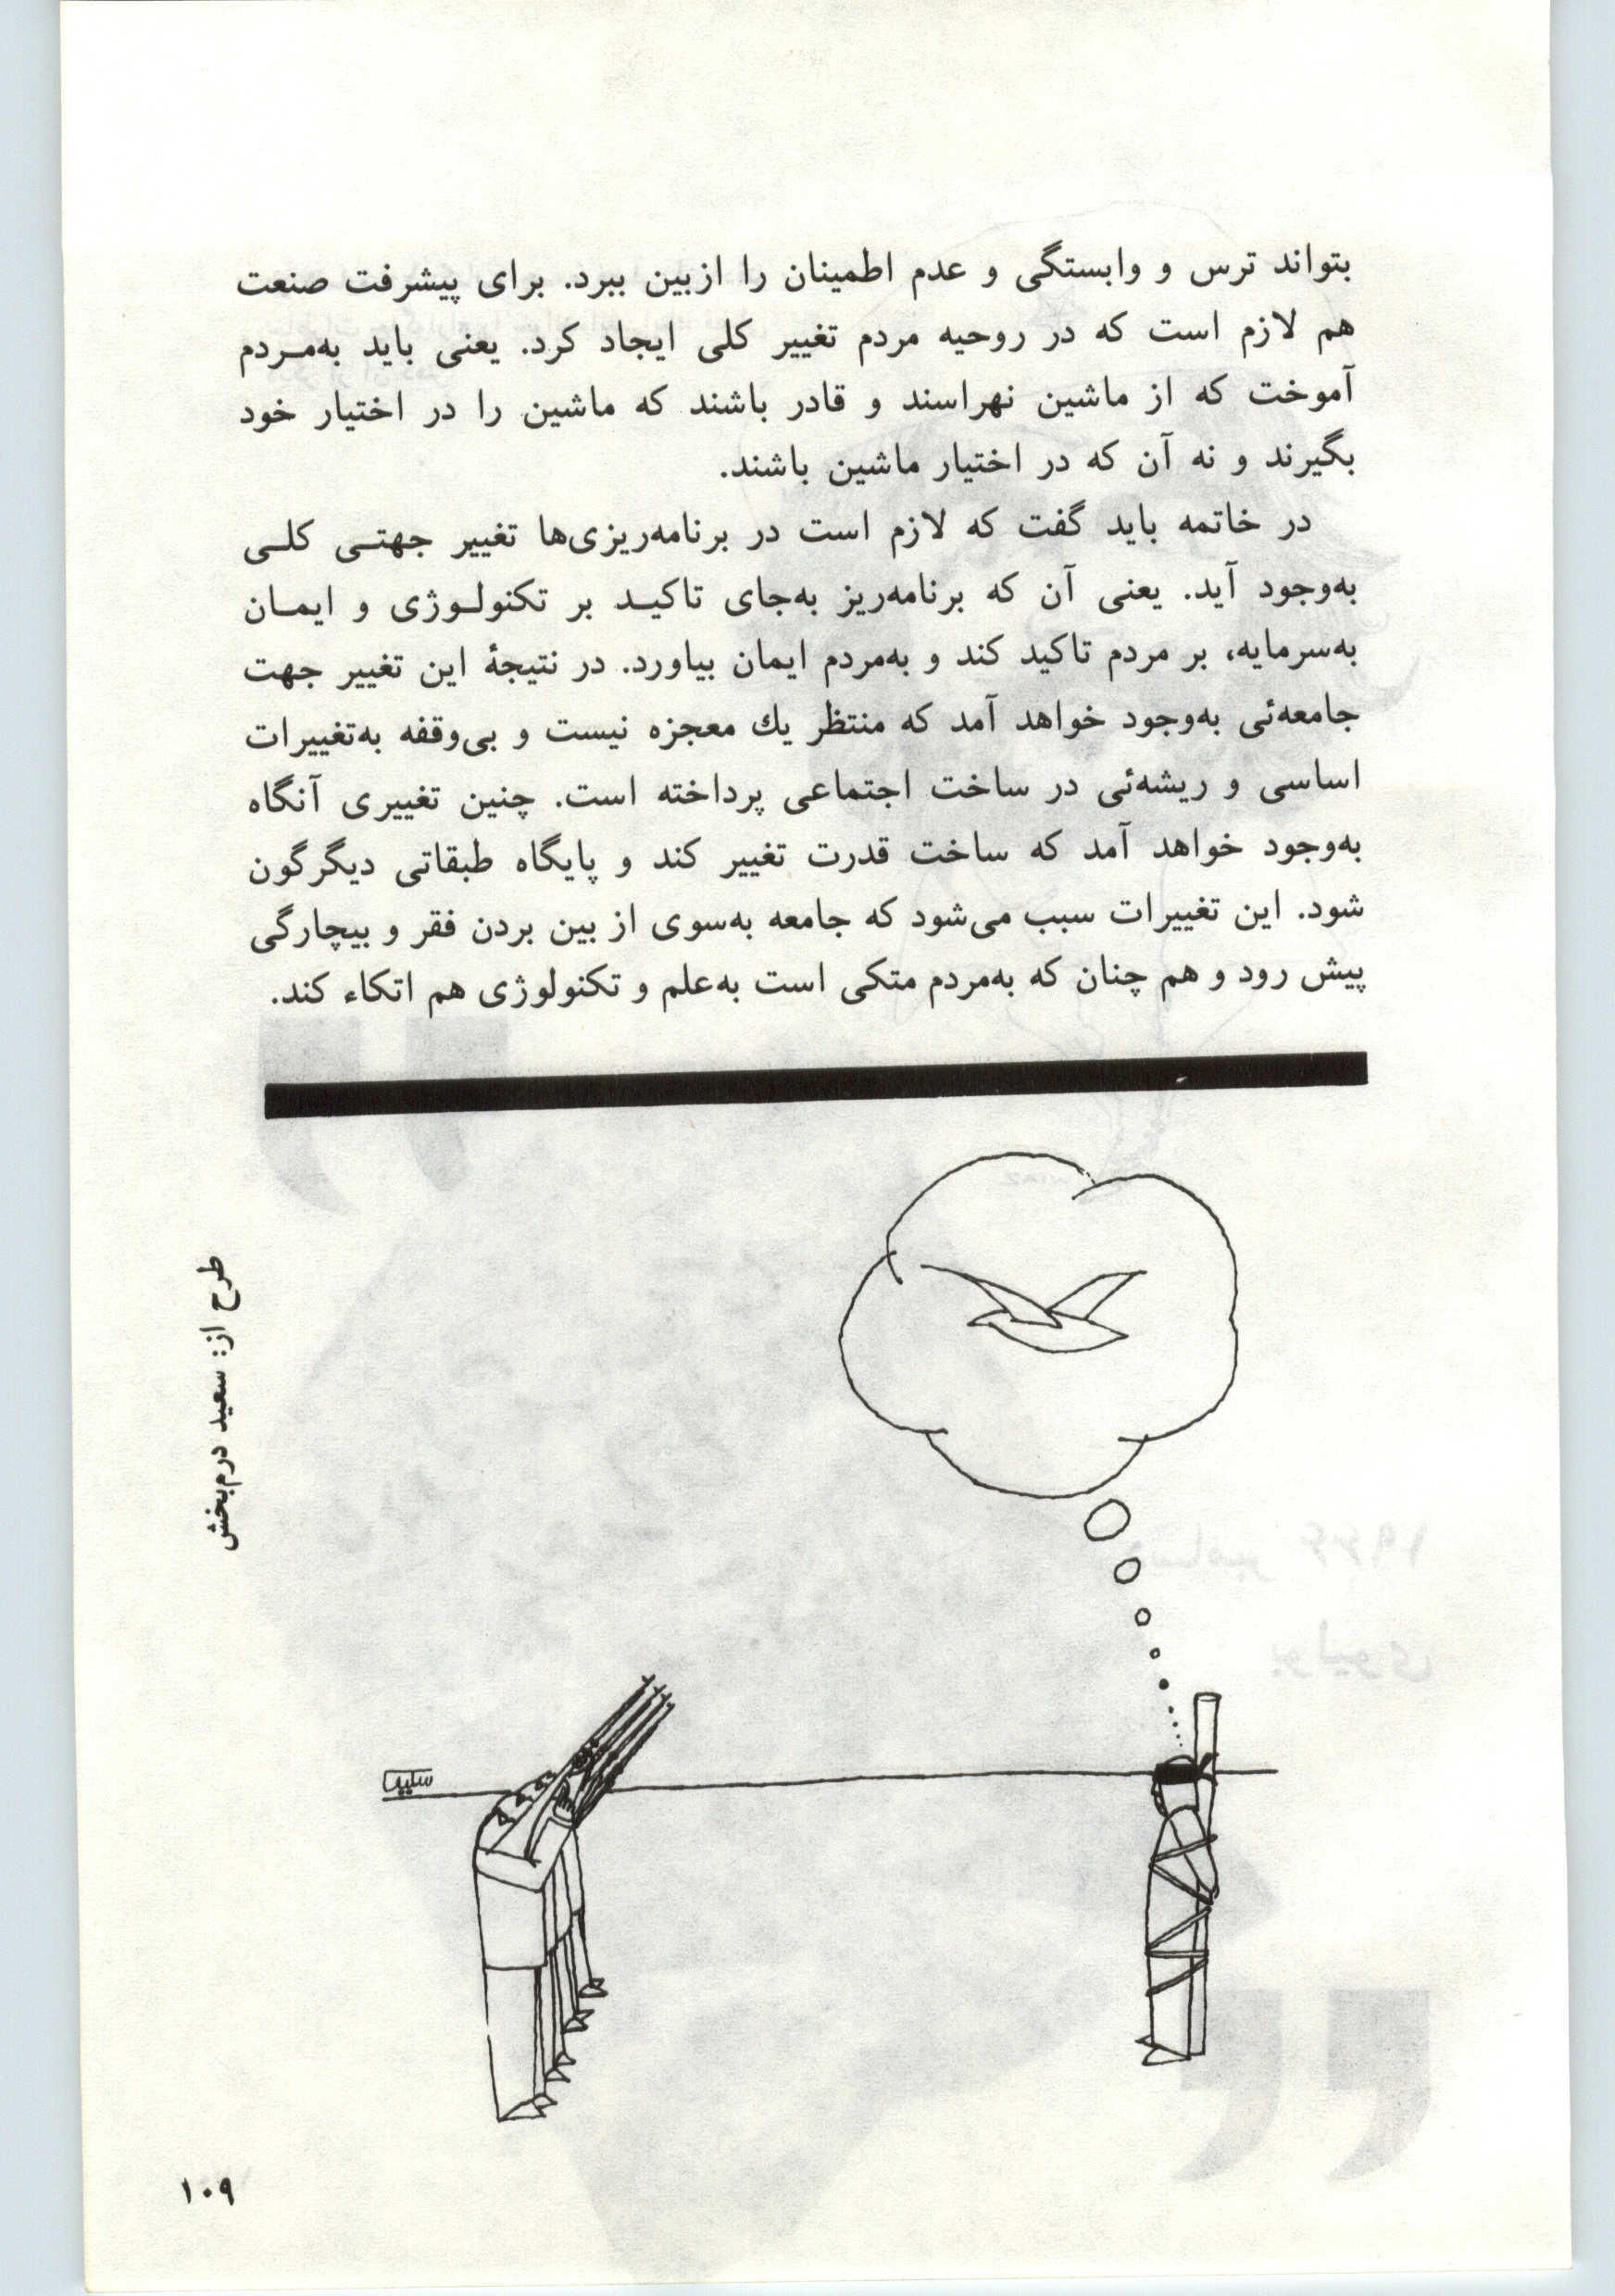 بتواند ترس و وابستگی و عدم اطمینان را ازبین ببرد. برای پیشرفت صنعت
هم لازم است که در روحیه مردم تغییر کلی ایجاد کرد. یعنی باید به‌مـردم
آموخت که از ماشین نهراسند و قادر باشند که ماشین را در اختیار خود
بگیرند و نه آن که در اختیار ماشین باشند.
در خاتمه باید گفت که لازم است در برنامه‌ریزی‌ها تغییر جهتـی کلـی
به‌وجود آید. یعنی آن که برنامه‌ریز به‌جای تاکیـد بر تکنولـوژی و ایمـان
به‌سرمایه، بر مردم تاکید کند و به‌مردم ایمان بیاورد. در نتیجهٔ این تغییر جهت
جامعه‌ئی به‌وجود خواهد آمد که منتظر یك معجزه نیست و بی‌وقفه به‌تغییرات
اساسی و ریشه‌ئی در ساخت اجتماعی پرداخته است. چنین تغییری آنگاه
به‌وجود خواهد آمد که ساخت قدرت تغییر کند و پایگاه طبقاتی دیگرگون
شود. این تغییرات سبب می‌شود که جامعه به‌سوی از بین بردن فقر و بیچارگی
پیش رود و هم چنان که به‌مردم متکی است به‌علم و تکنولوژی هم اتکاء کند.
طرح از: سعید درم‌بخش
۱۰۹